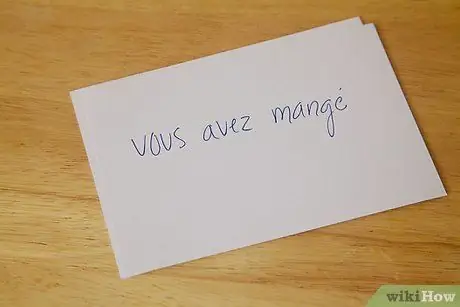 vous avez mangé
wikiHow